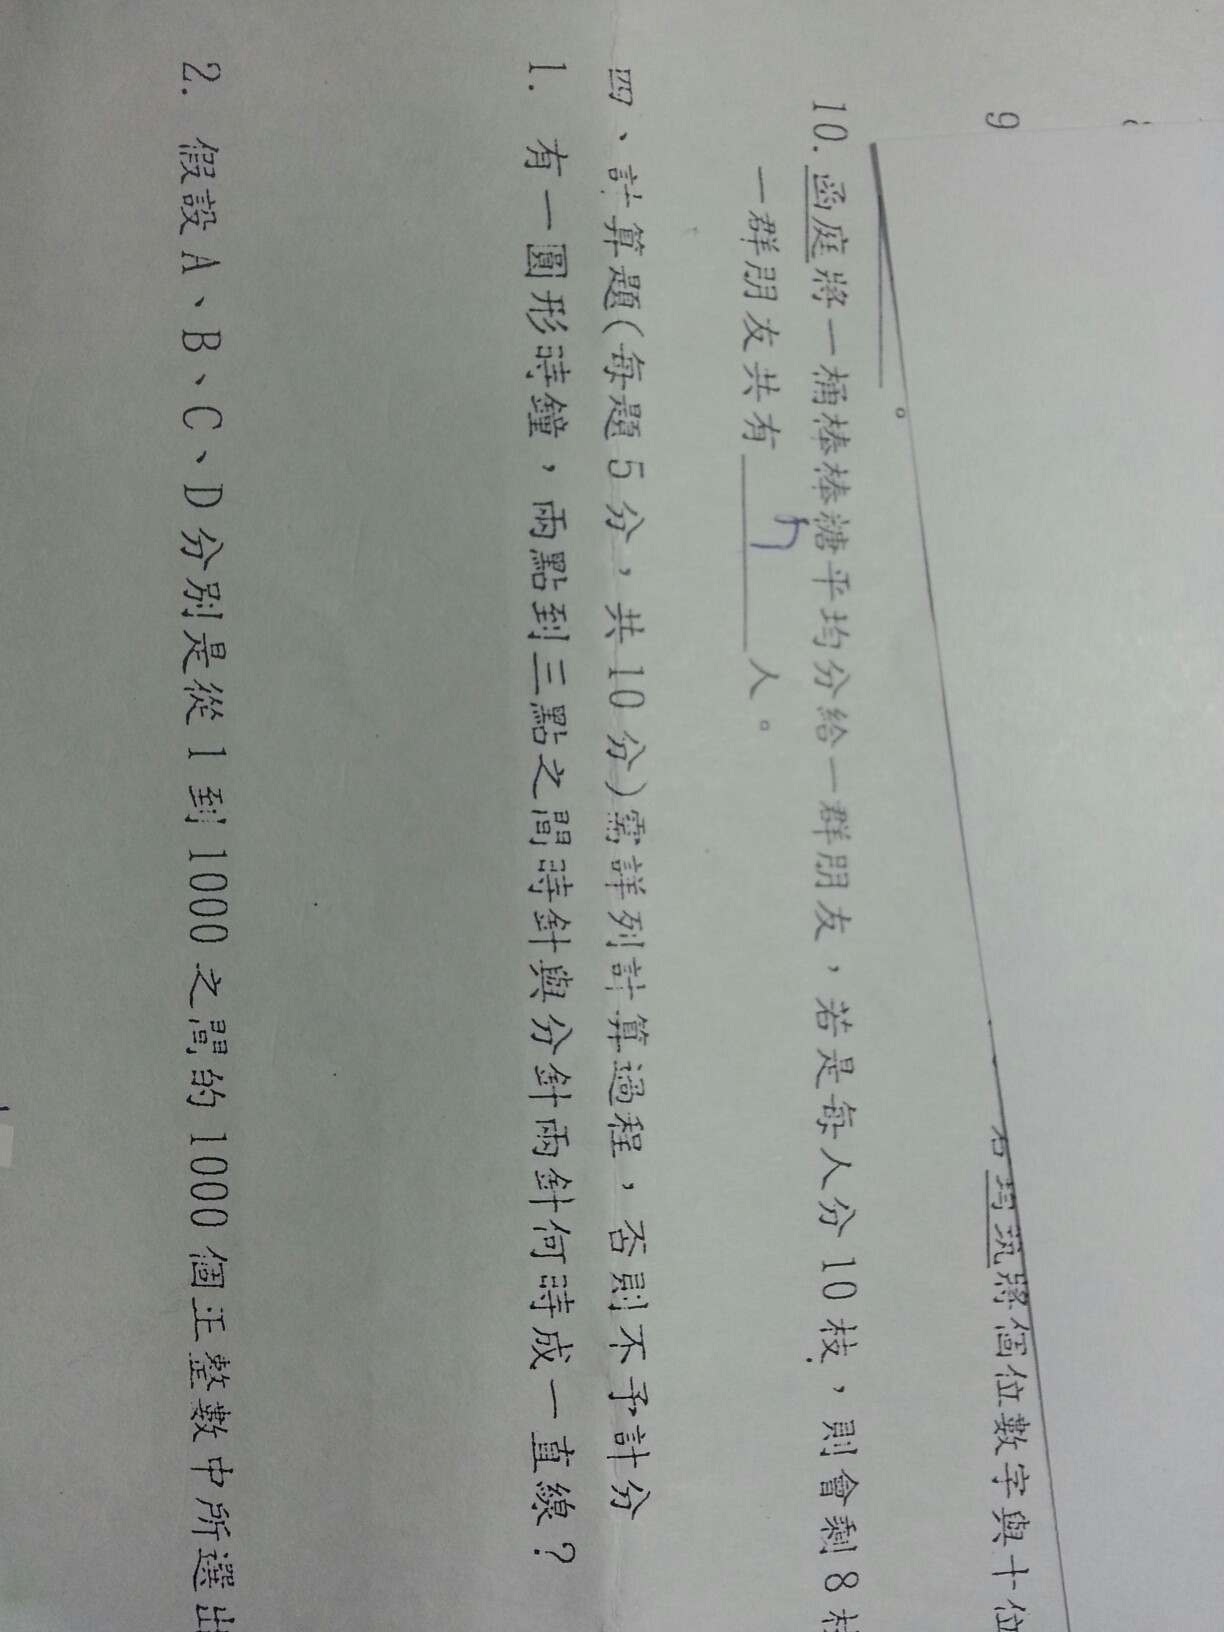 9
若均珮將個位數字與十位
。
10. 函庭將一桶棒棒糖平均分給一群朋友，若是每人分10枝，則會剩8枝
一群朋友共有 人。
四、計算題(每題5分，共10分)需詳列計算過程，否則不予計分
1. 有一圓形時鐘，兩點到三點之間時針與分針兩針何時成一直線？
2. 假設A、B、C、D分別是從1到1000之間的1000個正整數中所選出